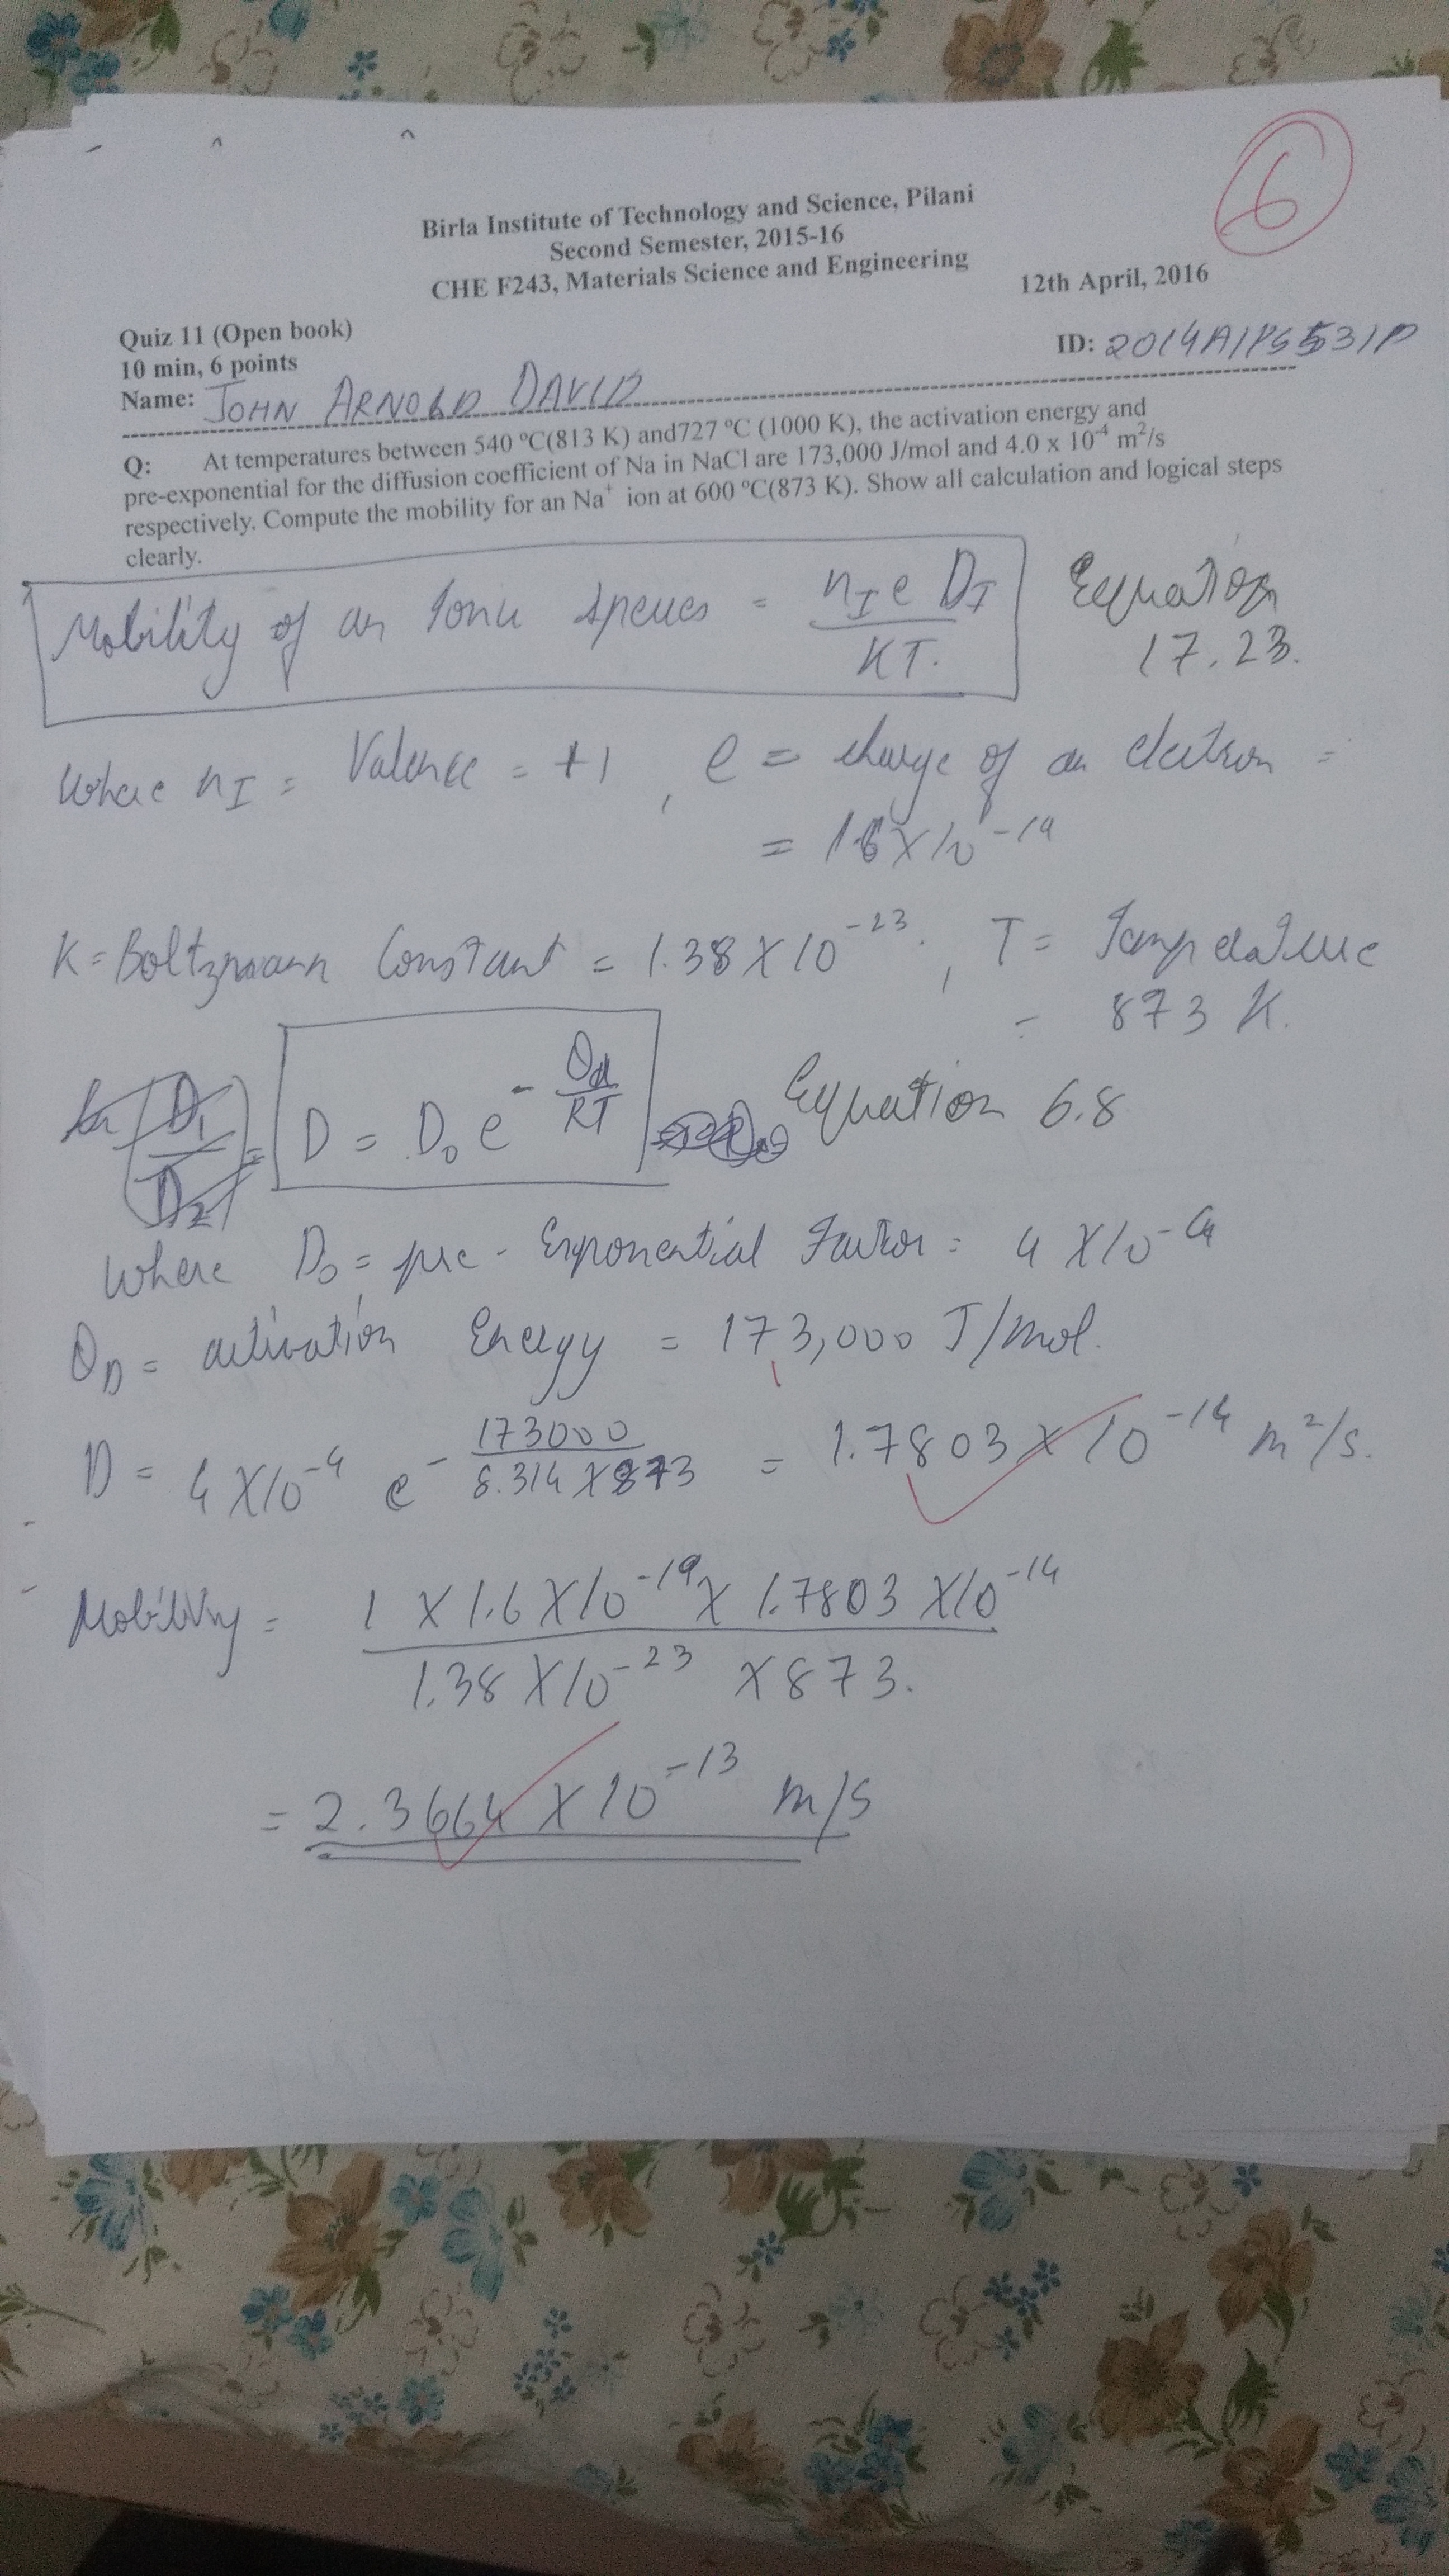 6
Birla Institute of Technology and Science, Pilani
Second Semester, 2015-16
CHE F243, Materials Science and Engineering
12th April, 2016
Quiz 11 (Open book)
10 min, 6 points
ID: 2014A1PS531P
Name: JOHN ARNOLD DAVID
Q: At temperatures between 540 ºC(813 K) and727 ºC (1000 K), the activation energy and
pre-exponential for the diffusion coefficient of Na in NaCl are 173,000 J/mol and 4.0 x 10⁻⁴ m²/s
respectively. Compute the mobility for an Na⁺ ion at 600 ºC(873 K). Show all calculation and logical steps
clearly.
Mobility of an Ionic Species = n_I e D_I / KT. Equation
17.23.
Where n_I = Valence = +1, e = charge of an electron =
= 1.6 X 10⁻¹⁹
K = Boltzmann Constant = 1.38 X 10⁻²³, T = Temperature
= 873 K.
ln(D₁/D₂) = D = D₀ e^(-Qd/RT) Equation 6.8
Where D₀ = pre-Exponential Factor = 4 X 10⁻⁴
Q_D = activation Energy = 173,000 J/mol.
D = 4 X 10⁻⁴ e^(-173000/8.314 X 873) = 1.7803 X 10⁻¹⁴ m²/s.
Mobility = 1 X 1.6 X 10⁻¹⁹ X 1.7803 X 10⁻¹⁴
1.38 X 10⁻²³ X 873.
= 2.3664 X 10⁻¹³ m/s